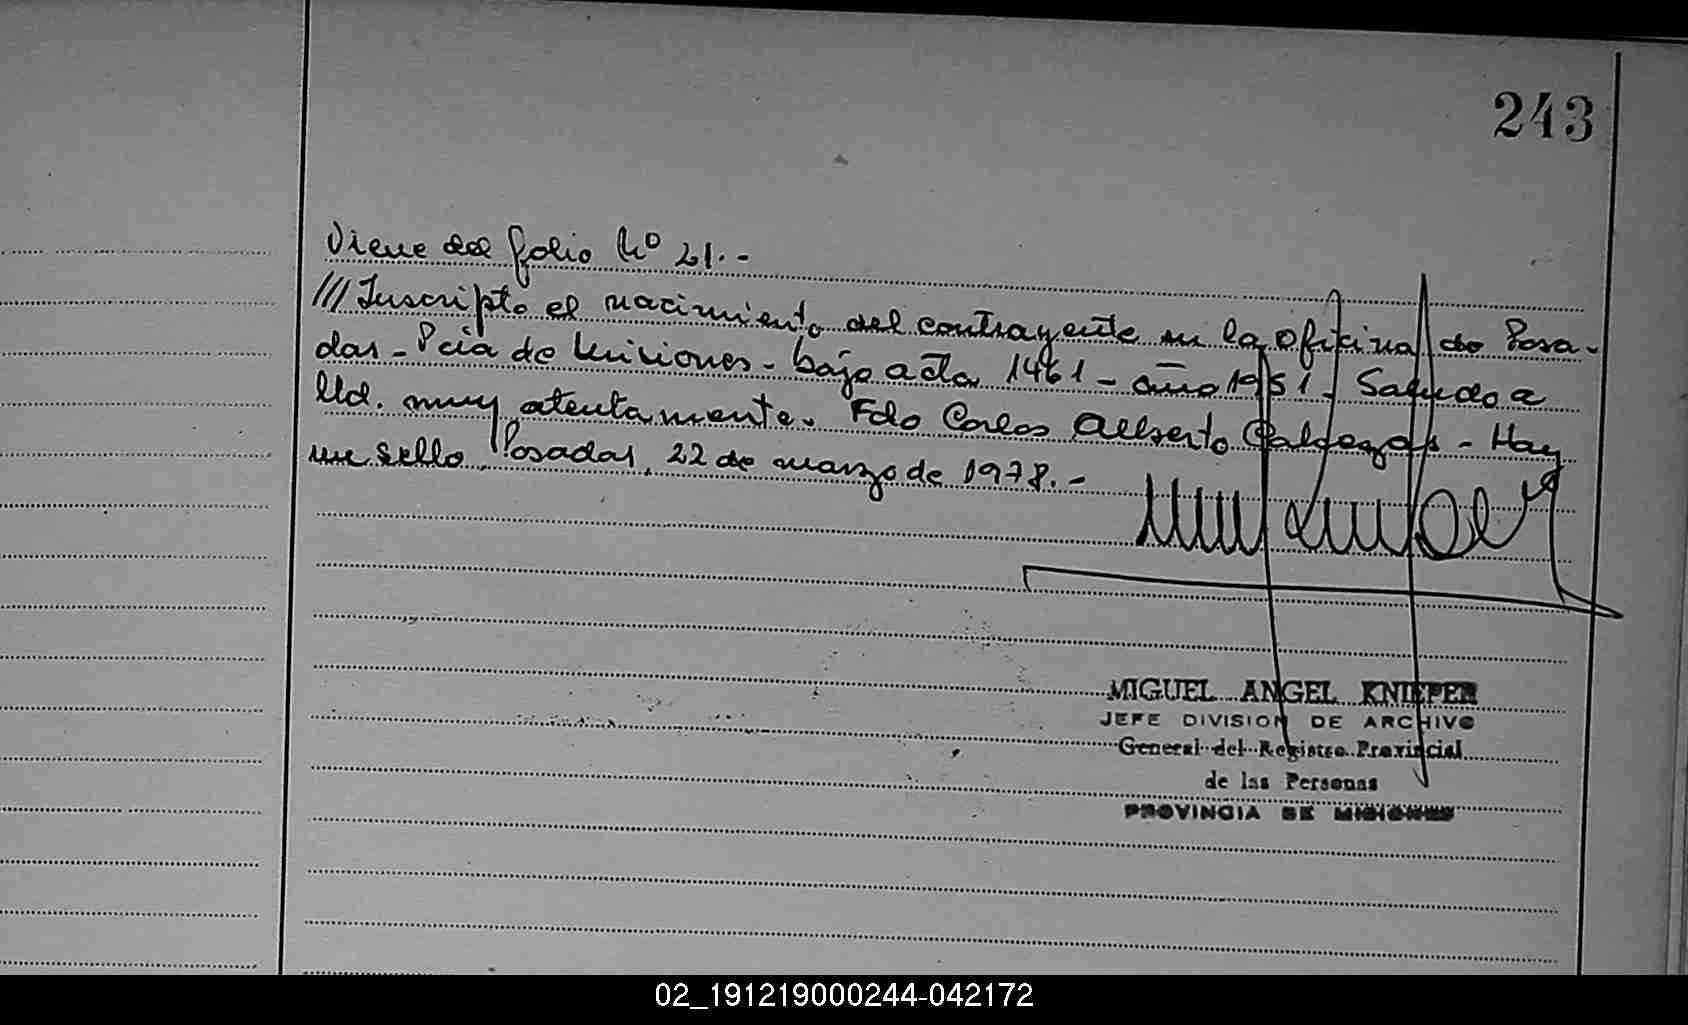 243
Viene del folio Nº 21.-
/// Inscripto el nacimiento del contrayente en la oficina de Posa-
das - Pcia de Misiones - bajo acta 1461 - año 1951 - Saludo a
Ud. muy atentamente. Fdo Carlos Alberto - Hay
un sello. Posadas, 22 de marzo de 1978.-
MIGUEL ANGEL KNIEPER
JEFE DIVISION DE ARCHIVO
General del Registro Provincial
de las Personas
PROVINCIA DE MISIONES
02_191219000244-042172